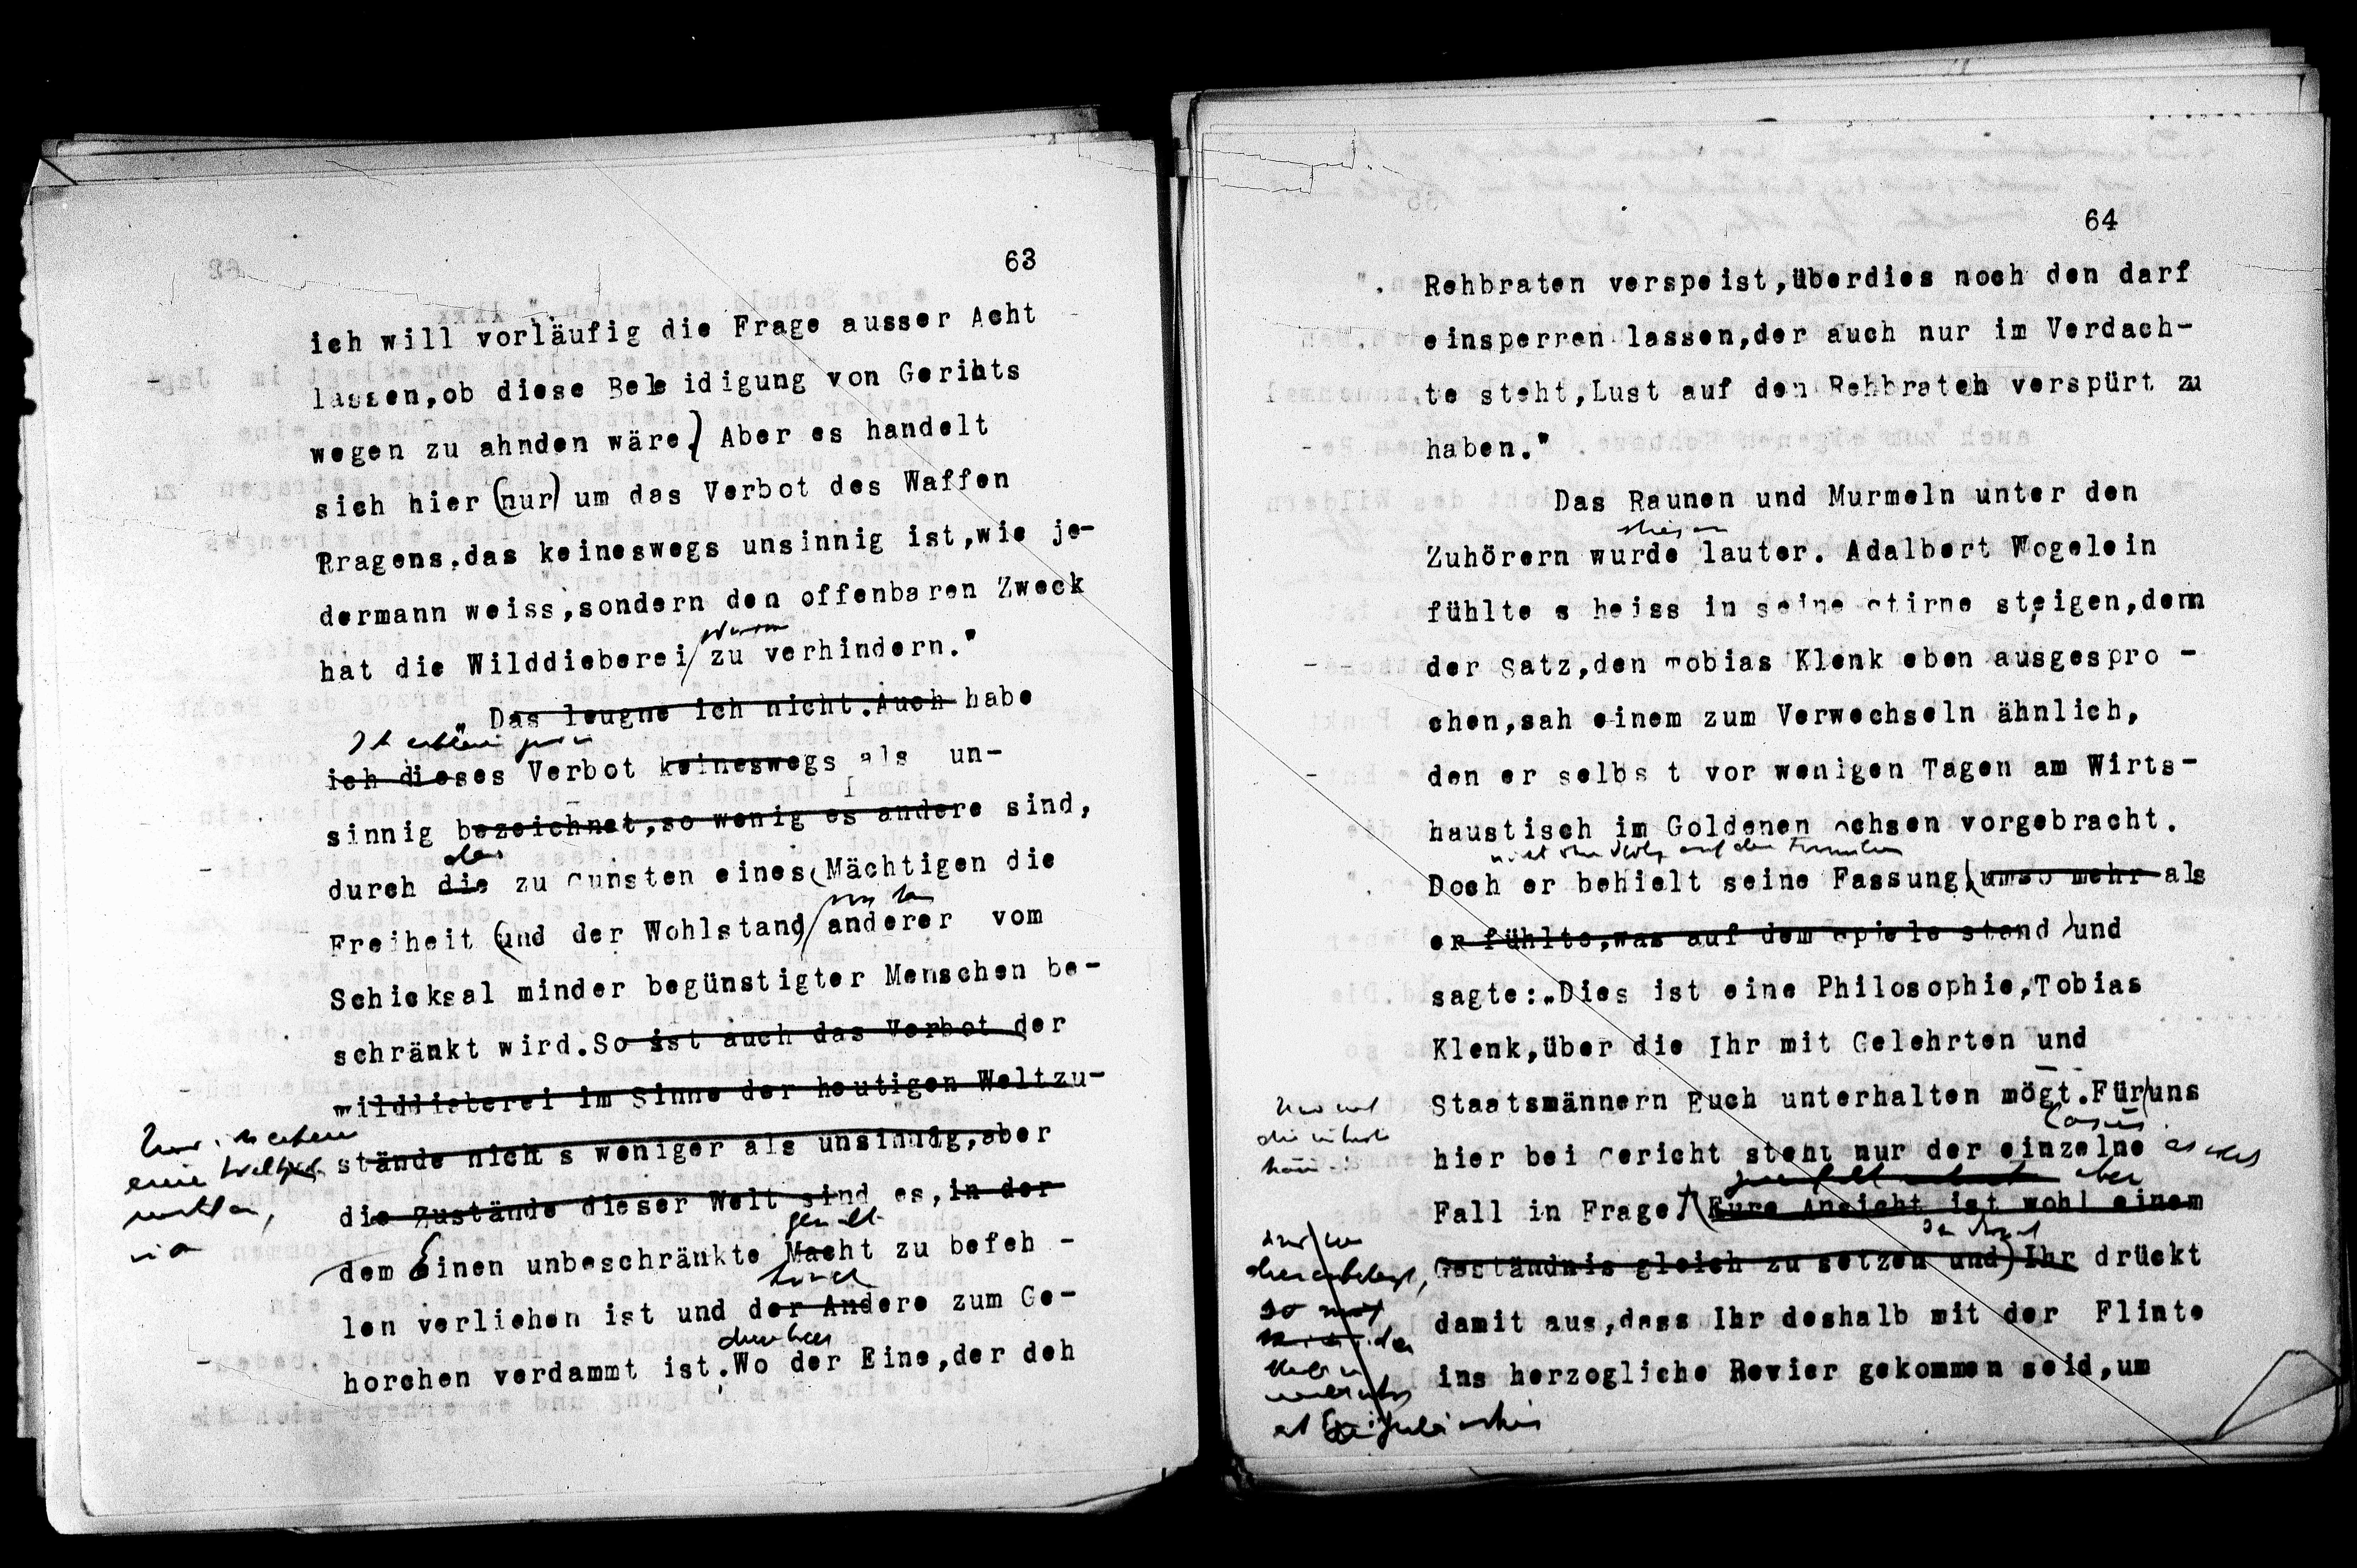 63
ich will vorläufig die Frage ausser Acht
lassen,ob diese Beleidigung von Gerihts
wegen zu ahnden wäre.) Aber es handelt
sich hier (nur) um das Verbot des Waffen
Tragens,das keineswegs unsinnig ist,wie je-
dermann weiss,sondern den offenbaren Zweck
hat die Wilddieberei/zu verhindern."
„ Das leugne ich nicht.Auch habe
ich dieses Verbot keineswegs als un-
sinnig bezeichnet,so wenig es andere sind,
das
durch die zu Gunsten eines(Mächtigen die
Freiheit (und der Wohlstand)/anderer vom
Schicksal minder begünstigter Menschen be-
schränkt wird.So ist auch das Verbot der
Wilddieberei im Sinne der heutigen Weltzu-
stände nichts weniger als unsinnig,aber
die Zustände dieser Welt sind es,in der
dem Einen unbeschränkte Macht zu befeh -
len verliehen ist und der Andere zum Ge-
horchen verdammt ist.Wo der Eine,der deh
64
Rehbraten verspeist,überdies noch den darf
einsperren lassen,der auch nur im Verdach-
te steht,Lust auf den Rehbraten verspürt zu
haben."
Das Raunen und Murmeln unter den
Zuhörern wurde lauter. Adalbert Wogelein
fühlte s heiss in seine Stirne steigen,denn
der Satz,den Tobias Klenk eben ausgespro -
chen,sah einem zum Verwechseln ähnlich,
den er selbst vor wenigen Tagen am Wirts-
haustisch im Goldenen Ochsen vorgebracht.
Doch er behielt seine Fassung(umso mehr als
er fühlte,was auf dem Spiele stand)und
sagte:„Dies ist eine Philosophie,Tobias
Klenk,über die Ihr mit Gelehrten und
Staatsmännern Euch unterhalten mögt.Für uns
hier bei Gericht steht nur der einzelne
aber
Fall in Frage.(Eure Ansicht ist wohl einem
Geständnis gleich zu setzen und) Ihr drückt
damit aus,dass Ihr deshalb mit der Flinte
ins herzogliche Revier gekommen seid,um